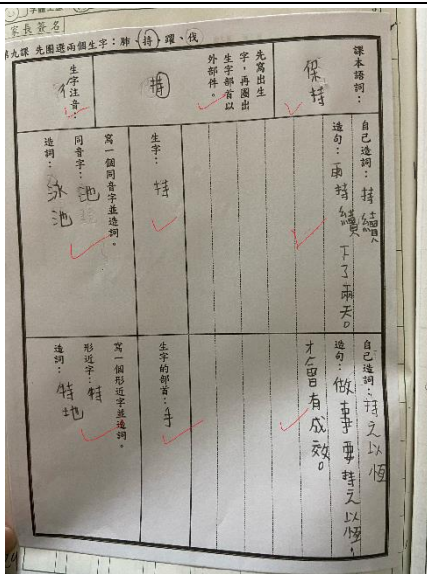 家長簽名
第九課 先圈選兩個生字:肺、持、躍、伐
課本語詞:
保持
先寫出生字,再圈出生字部首以外部件。
持
生字注音:
ㄔˊ
自己造詞:持續
造句:雨持續下了兩天。
生字:持
寫一個同音字並造詞。
同音字:池
造詞:泳池
自己造詞:持之以恆
造句:做事要持之以恆,
才會有成效。
生字的部首:手
寫一個形近字並造詞。
形近字:特
造詞:特地